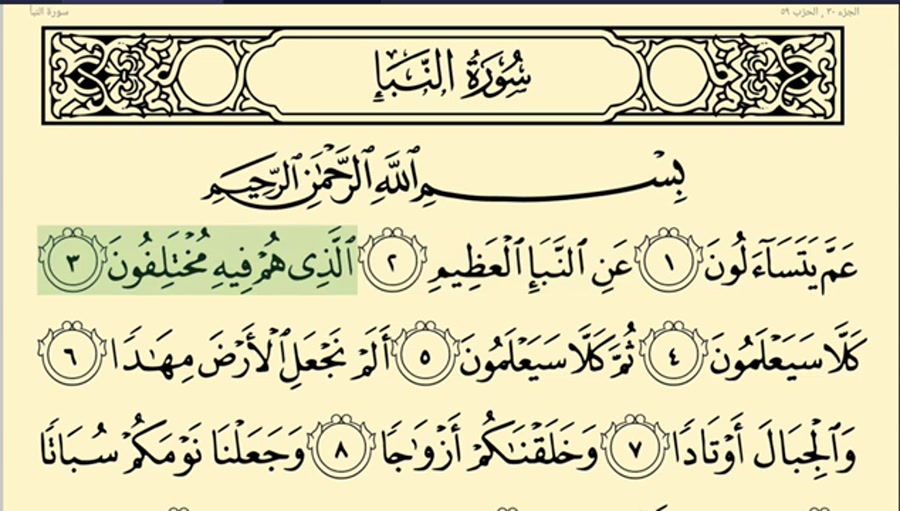 الجزء ٣٠ , الحزب ٥٩ سورة النبأ
سُورَةُ النَّبَإِ
بِسْمِ ٱللَّهِ ٱلرَّحْمَٰنِ ٱلرَّحِيمِ
عَمَّ يَتَسَآءَلُونَ ١ عَنِ ٱلنَّبَإِ ٱلْعَظِيمِ ٢ ٱلَّذِى هُمْ فِيهِ مُخْتَلِفُونَ ٣
كَلَّا سَيَعْلَمُونَ ٤ ثُمَّ كَلَّا سَيَعْلَمُونَ ٥ أَلَمْ نَجْعَلِ ٱلْأَرْضَ مِهَٰدًا ٦
وَٱلْجِبَالَ أَوْتَادًا ٧ وَخَلَقْنَٰكُمْ أَزْوَٰجًا ٨ وَجَعَلْنَا نَوْمَكُمْ سُبَاتًا